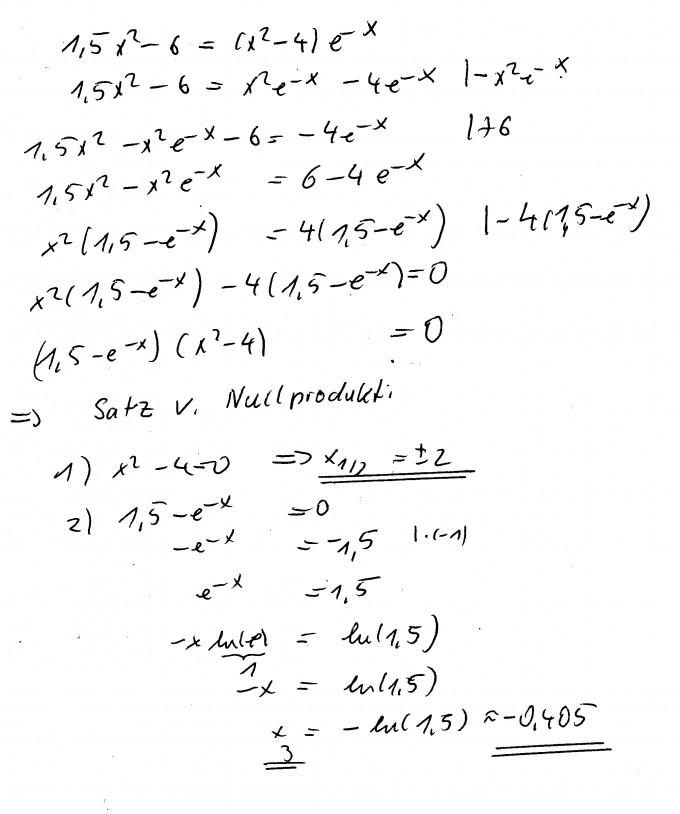 1,5x² - 6 = (x² - 4) e^-x
1,5x² - 6 = x²e^-x - 4e^-x |-x²e^-x
1,5x² - x²e^-x - 6 = -4e^-x |+6
1,5x² - x²e^-x = 6 - 4e^-x
x²(1,5 - e^-x) = 4(1,5 - e^-x) |-4(1,5 - e^-x)
x²(1,5 - e^-x) - 4(1,5 - e^-x) = 0
(1,5 - e^-x) (x² - 4) = 0
=> Satz v. Nullprodukt:
1) x² - 4 = 0 => x1/2 = ±2
2) 1,5 - e^-x = 0
-e^-x = -1,5 |·(-1)
e^-x = 1,5
-x ln(e) = ln(1,5)
1
-x = ln(1,5)
x3 = -ln(1,5) ≈ -0,405